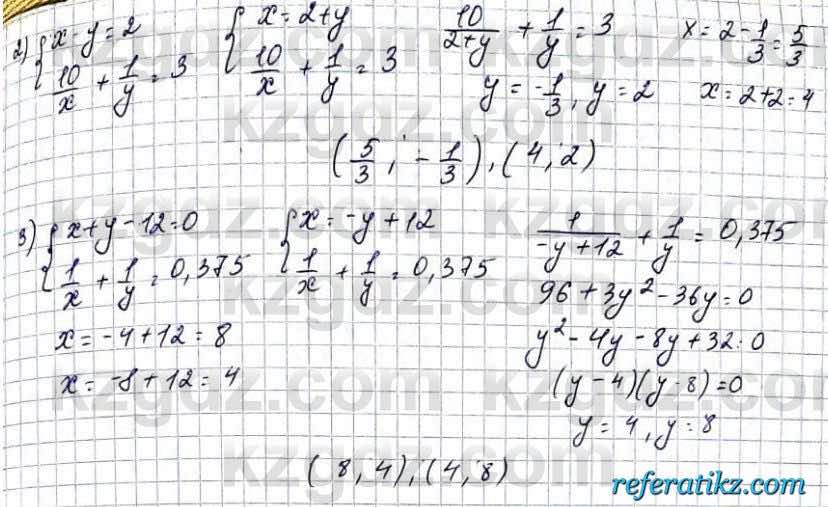 2) { x - y = 2
10/x + 1/y = 3
{ x = 2 + y
10/x + 1/y = 3
10/(2+y) + 1/y = 3
y = -1/3, y = 2
x = 2 - 1/3 = 5/3
x = 2 + 2 = 4
(5/3; -1/3), (4; 2)
3) { x + y - 12 = 0
1/x + 1/y = 0,375
{ x = -y + 12
1/x + 1/y = 0,375
1/(-y + 12) + 1/y = 0,375
96 + 3y² - 36y = 0
y² - 4y - 8y + 32 = 0
(y - 4)(y - 8) = 0
y = 4, y = 8
x = -4 + 12 = 8
x = -8 + 12 = 4
(8; 4), (4; 8)
kzgdz.com
referatikz.com